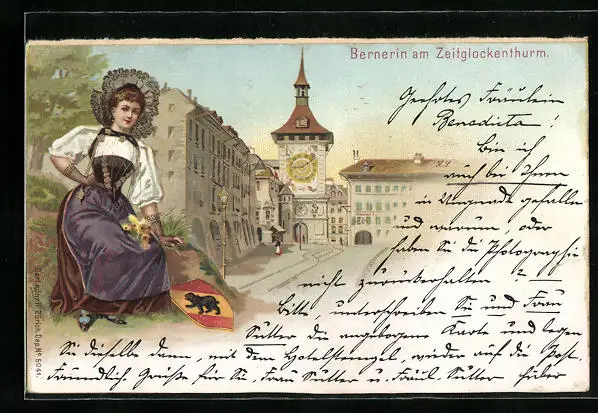 Bernerin am Zeitglockenthurm.
Geehrtes Fräulein
Benedicta!
Bin ich
auch bei Ihnen
in Ungnade gefallen
und warum, oder
haben Sie die Photographie
nicht zurückerhalten?
Bitte, unterschreiben Sie und Frau
Sutter die angebogene Karte und legen
Sie dieselbe dann, mit dem Hotelstempel, wieder auf die Post.
Freundlich. Grüße für Sie, Frau Sutter u. Fräul. Sutter
Zürich. Dep. Nº 5041.